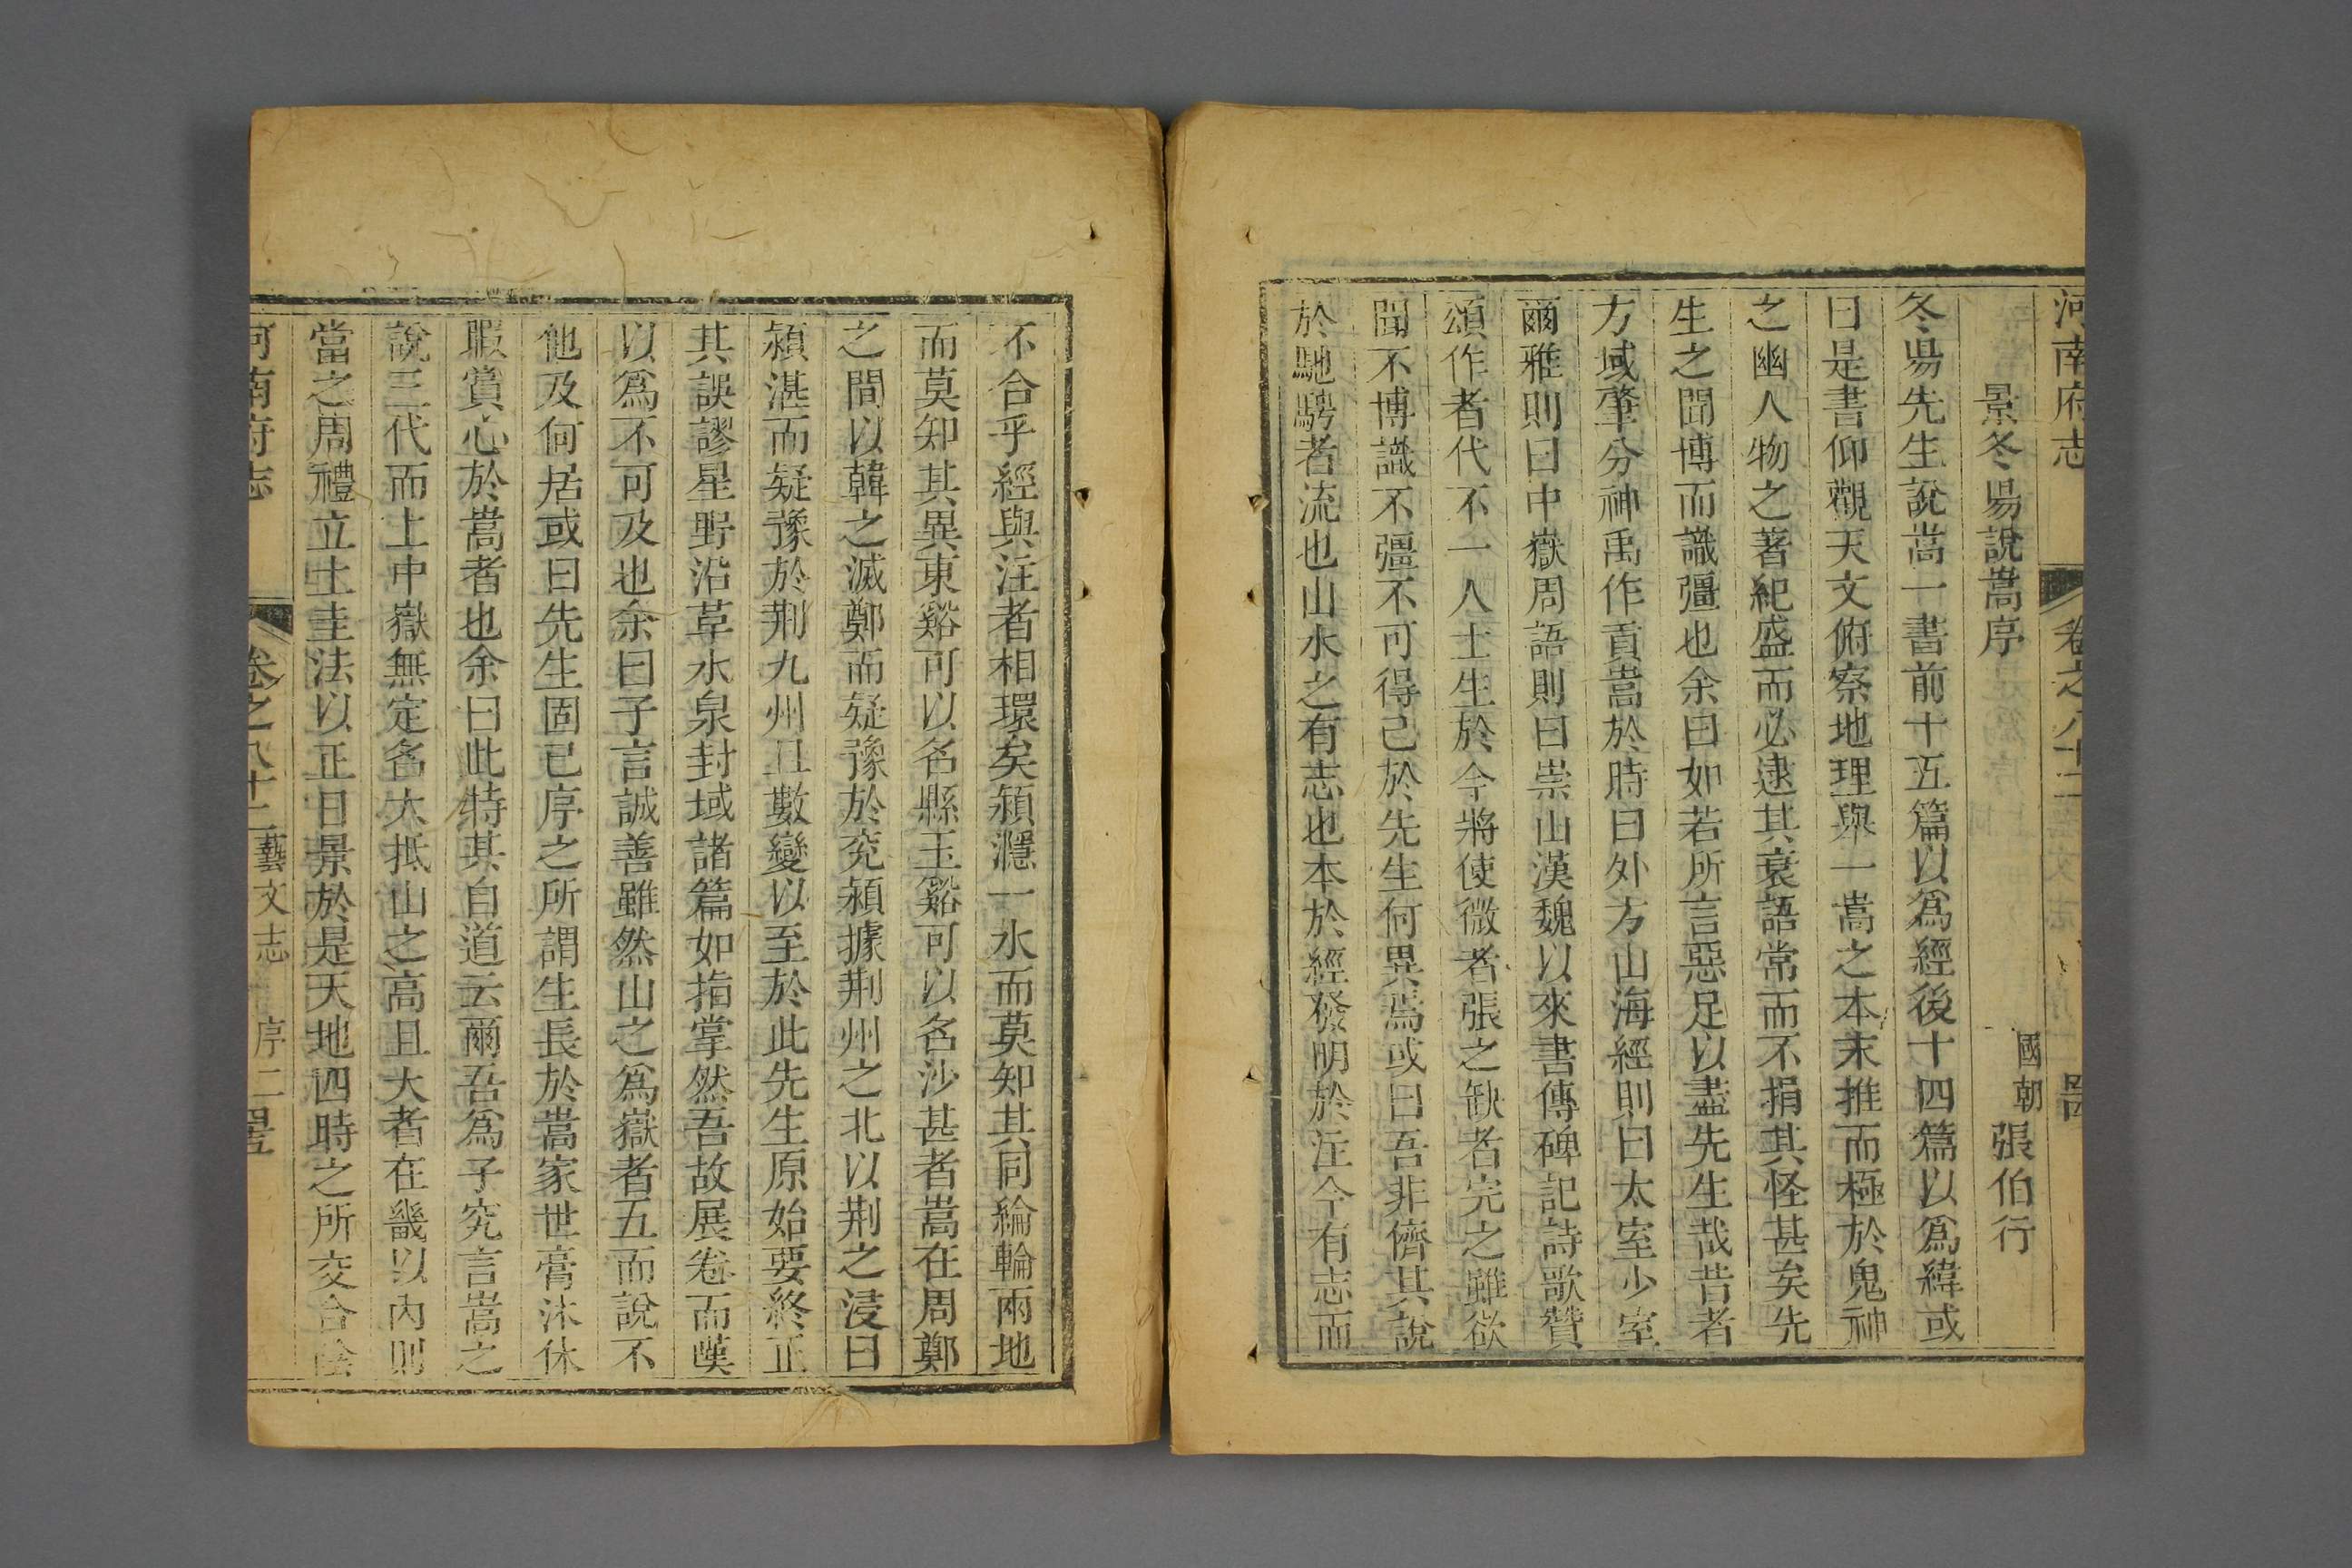 河南府志 卷之八十二
景冬昜說嵩序
國朝張伯行
冬昜先生說嵩一書前十五篇以爲經後十四篇以爲緯或
曰是書仰觀天文俯察地理與一嵩之本末推而極於鬼神
之幽人物之著紀盛而必逮其衰語常而不捐其怪甚矣先
生之聞博而識彊也余曰如若所言惡足以盡先生哉昔者
方域肇分神禹作貢嵩於時曰外方山海經則曰太室少室
爾雅則曰中嶽周語則曰崇山漢魏以來書傳碑記詩歌贊
頌作者代不一人士生於今將使微者張之缺者完之雖欲
聞不博識不彊不可得已於先生何異焉或曰吾非儕其說
於馳騁者流也山水之有志也本於經發明於注今有志而
不合乎經與注者相環矣潁濦一水而莫知其同綸輪兩地
而莫知其異東谿可以名縣玉谿可以名沙甚者嵩在周鄭
之間以韓之滅鄭而疑豫於兖潁據荆州之北以荆之浸曰
潁湛而疑豫於荆九州且數變以至於此先生原始要終正
其誤謬星野沿革水泉封域諸篇如指掌然吾故展卷而嘆
以爲不可及也余曰子言誠善雖然山之爲嶽者五而說不
他及何居或曰先生固已序之所謂生長於嵩家世膏沐休
暇賞心於嵩者也余曰此特其自道云爾吾爲子究言嵩之
說三代而上中嶽無定名大抵山之高且大者在畿以內則
當之周禮立土圭法以正日景於是天地四時之所交合陰
河南府志 卷之八十二 藝文志 序二